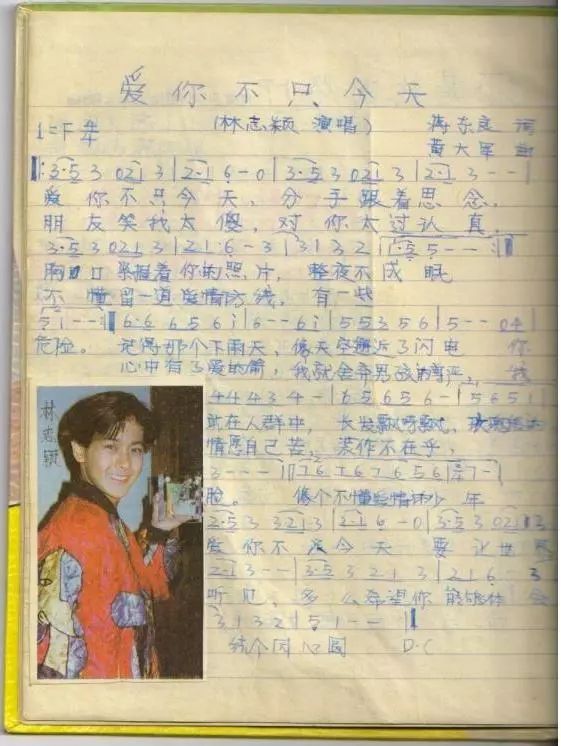 爱你不只今天
1=F 4/4 (林志颖 演唱) 蒋东良 词
黄大军 曲
‖: 3·5 3 021 3 | 2·1 6 - 0 | 3·5 3 021 3 | 2·1 3 - - |
爱你不只今天，分手跟着思念。
朋友笑我太傻，对你太过认真。
3·5 3 021 3 | 21:6 - 3 | 3 1 3 2 | 1·5 5 - - :‖
胸口紧握着你的照片，整夜不成眠
不懂留一道爱情防线，有一些
1 - - ‖ 6·6 6 5 6 i | 6 - - 6 i | 5 5 3 5 6 | 5 - - 0
危险。记得那个下雨天，像天空 了闪电 你
心中有了爱的箭，我就舍弃男 的尊严，我
4 4 4 3 4 - | 6 5 6 5 6 - | 5 6 5
站在人群中，长发飘呀飘，
情愿自己苦，装作不在乎，
林志颖
3 - - - | 7 6 7 6 7 6 5 6 | 7 - |
脸。像个不懂爱情 少年
2·5 3 321 3 | 2·1 6 - 0 | 3·5 3 021 3
爱你不 今天 要让世界
2·1 3 - - | 3·5 3 2 1 3 | 2 1 6 3
听见，多么希望你能够体会
3 1 3 2 | 5 1 - - ‖
D.C